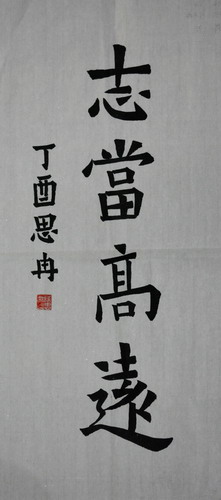 志當高遠
丁酉思冉